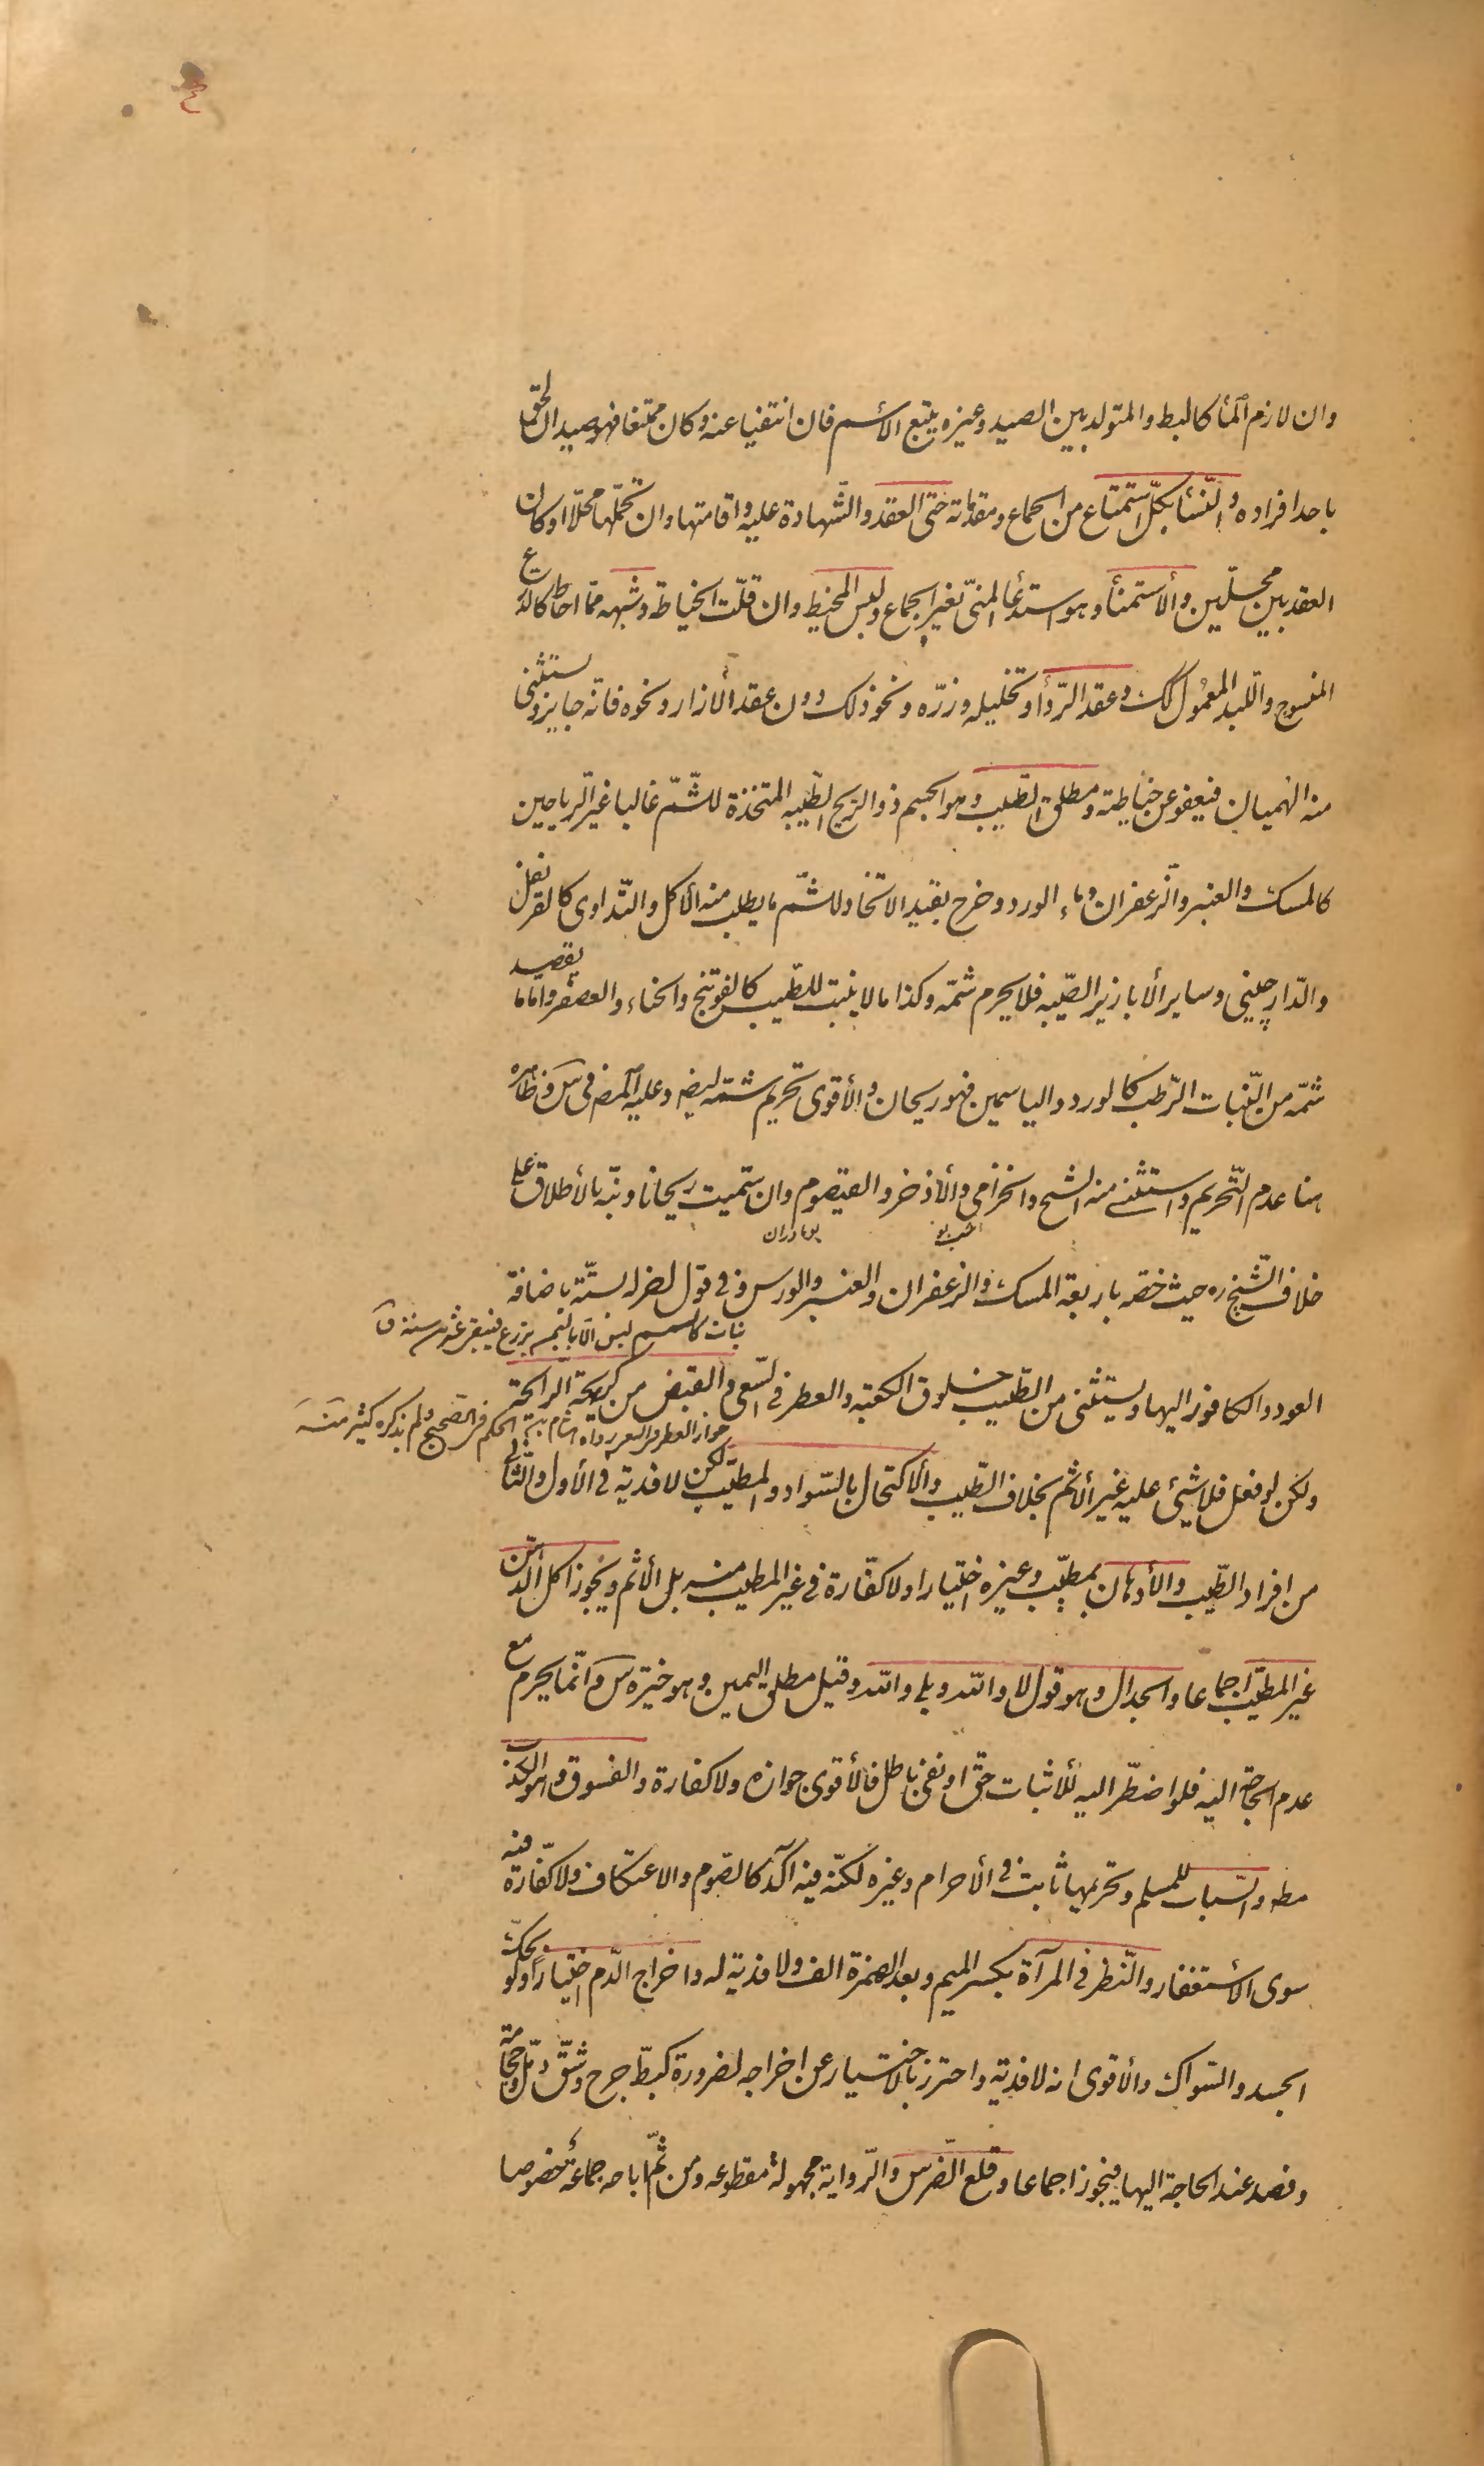 وان لازم المآء كالبط والمتولد بين الصيد وغيره يتبع الأسم فان انتفيا عنه وكان ممتنعا فهو صيد ان لحق
باحد افراده والنّسآء بكلّ استمتاع من الجماع ومقدّماته حتى العقد والشّهادة عليه واقامتها وان تحمّلها محلّا او كان
العقد بين محلّين والأستمنآء وهو استدعآء المنىّ بغير الجماع ولبس المخيط وان قلّت الخياطة وشبهه ممّا احاط كالدّرع
المنسوج واللّبد المعمول كك وعقد الرّدآء وتخليله وزرّه ونحو ذلك دون عقد الأزار ونحوه فانّه جايز ويستثنى
منه الهميان فيعفو عن خياطته ومطلق الطّيب وهو الجسم ذو الريح الطّيبه المتخذة للشّمّ غالبا غير الرياحين
كالمسك والعنبر والزّعفران وماء الورد وخرج بقيد الاتخاذ للشّمّ ما يطلب منه الأكل والتّداوى كالقرنفل
والدّارچينى وساير الأبازير الطّيبه فلا يحرم شمّه وكذا ما لا ينبت للطّيب كالفوتنج والحناء والعصفر واما ما يقصد
شمّه من النّبات الرّطب كالورد والياسمين فهو ريحان والأقوى تحريم شمّه ايض وعليه المص فى س وظاهره
هنا عدم التّحريم واستثنى منه الشيح والخزامى والأذخر والقيصوم وان سمّيت ريحانا ونبّه بالأطلاق على
بومادران
خلاف الشّيخ ره حيث خصّه باربعة المسك والزعفران والعنبر والورس و فى قول اخر له ستّة باضافة
نبات كالسمسم ليس الّا باليمن يزرع فيبقى عشرين سنة ق
العود والكافور اليها ويستثنى من الطّيب خلوق الكعبة والعطر فى السّعى والقبض من كريهة الرائحة
جواز العطر فى السعى رواه هشام بن الحكم فى الصّحيح ولم يذكره كثير منه
ولكن لو فعل فلا شيئ عليه غير الأثم بخلاف الطّيب والاكتحال بالسّواد والمطيّب لكن لا فدية فى الأول والثّانى
من افراد الطّيب والأدهان بمطيّب وغيره اختيارا ولا كفّارة فى غير المطيب منه بل الأثم ويجوز اكل الدّهن
غير المطيّب اجماعا والجدال وهو قول لا والله وبلى والله وقيل مطلق اليمين وهو خيرة س وانّما يحرم مع
عدم الحاجة اليه فلو اضطّر اليه لأثبات حقّ او نفى باطل فالأقوى جوازه ولا كفارة والفسوق وهو الكذب
مطه والسّباب للمسلم وتحريمها ثابت فى الأحرام وغيره لكنّه فيه آكد كالصّوم والاعتكاف ولا كفّارة فيه
سوى الأستغفار والنّظر فى المرآة بكسر الميم وبعد الهمزة الف ولا فدية له واخراج الدّم اختيارا ولو بحكّ
الجسد والسّواك والأقوى انه لا فدية واحترز بالاختيار عن اخراجه لضرورة كبطّ جرح وشقّ دمّل وحجامة
وفصد عند الحاجة اليها فيجوز اجماعا وقلع الضّرس والرّواية مجهولة مقطوعه ومن ثمّ اباحه جماعة خصوصا